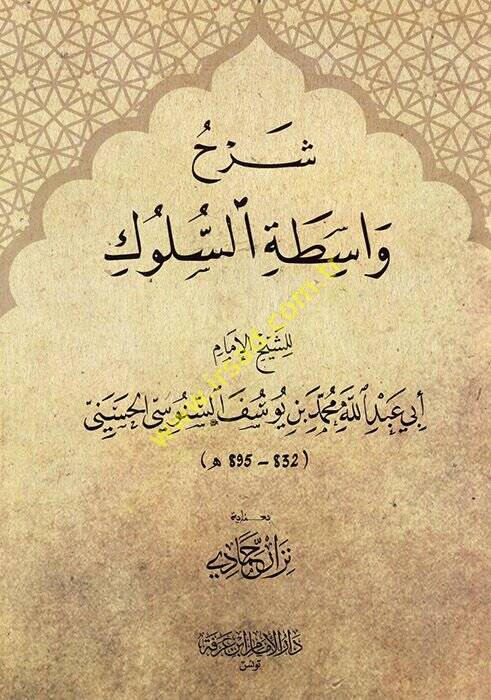 شَرْحُ
وَاسِطَةِ ٱلسُّلُوكِ
للشيخ الإمام
أبي عبد الله محمد بن يوسف السنوسي الحسيني
(832 - 895 هـ)
بعناية
نزار حمادي
دار الإمام ابن عرفة
تونس